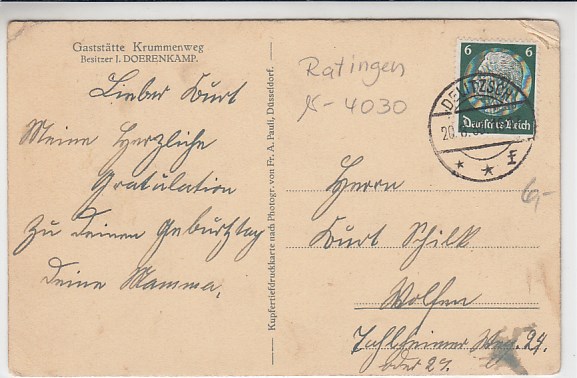 Gaststätte Krummenweg
Besitzer J. DOERENKAMP.
Lieber Kurt
Meine Herzliche
Gratulation
Zu deinen Geburtstag
deine Mamma.
Kupfertiefdruckkarte nach Photogr. von Fr. A. Pauli, Düsseldorf.
Ratingen
K- 4030
6 6
Deutsches Reich
DELITZSCH
20.
f
6,-
Herrn
Kurt Schilk
Wolfen
Zahlheimer Weg. 24.
oder 27.